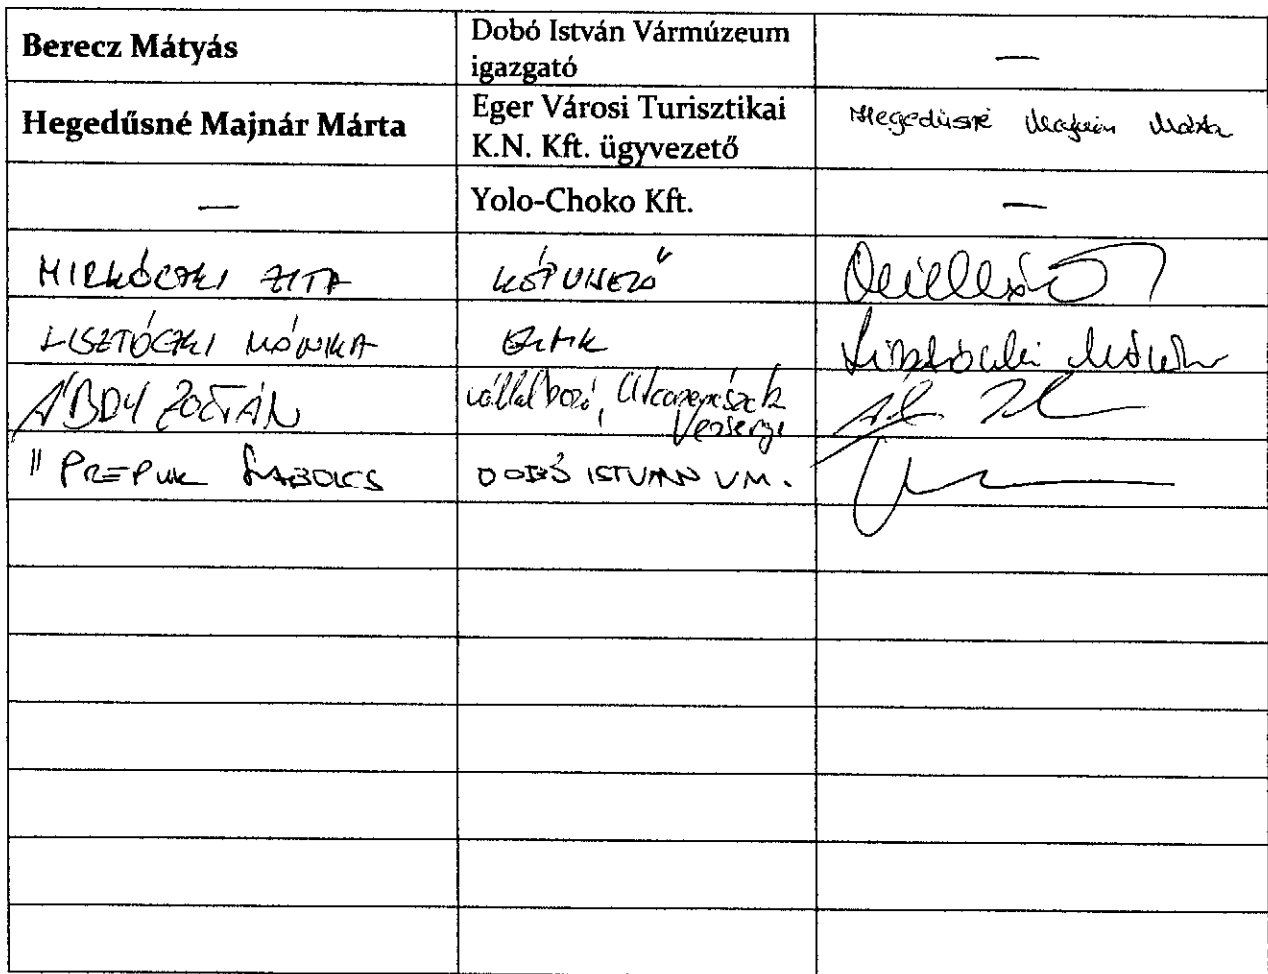 Berecz Mátyás
Dobó István Vármúzeum
igazgató
—
Hegedűsné Majnár Márta
Eger Városi Turisztikai
K.N. Kft. ügyvezető
Hegedűsné Majnár Márta
—
Yolo-Choko Kft.
—
MIRKÓCZKI ZITA
LISZTÓCZKI MÓNIKA
Lisztóczki Mónika
ÁBDY ZOLTÁN
vállalkozó,
" PREPUK SZABOLCS
DOBÓ ISTVÁN VM.